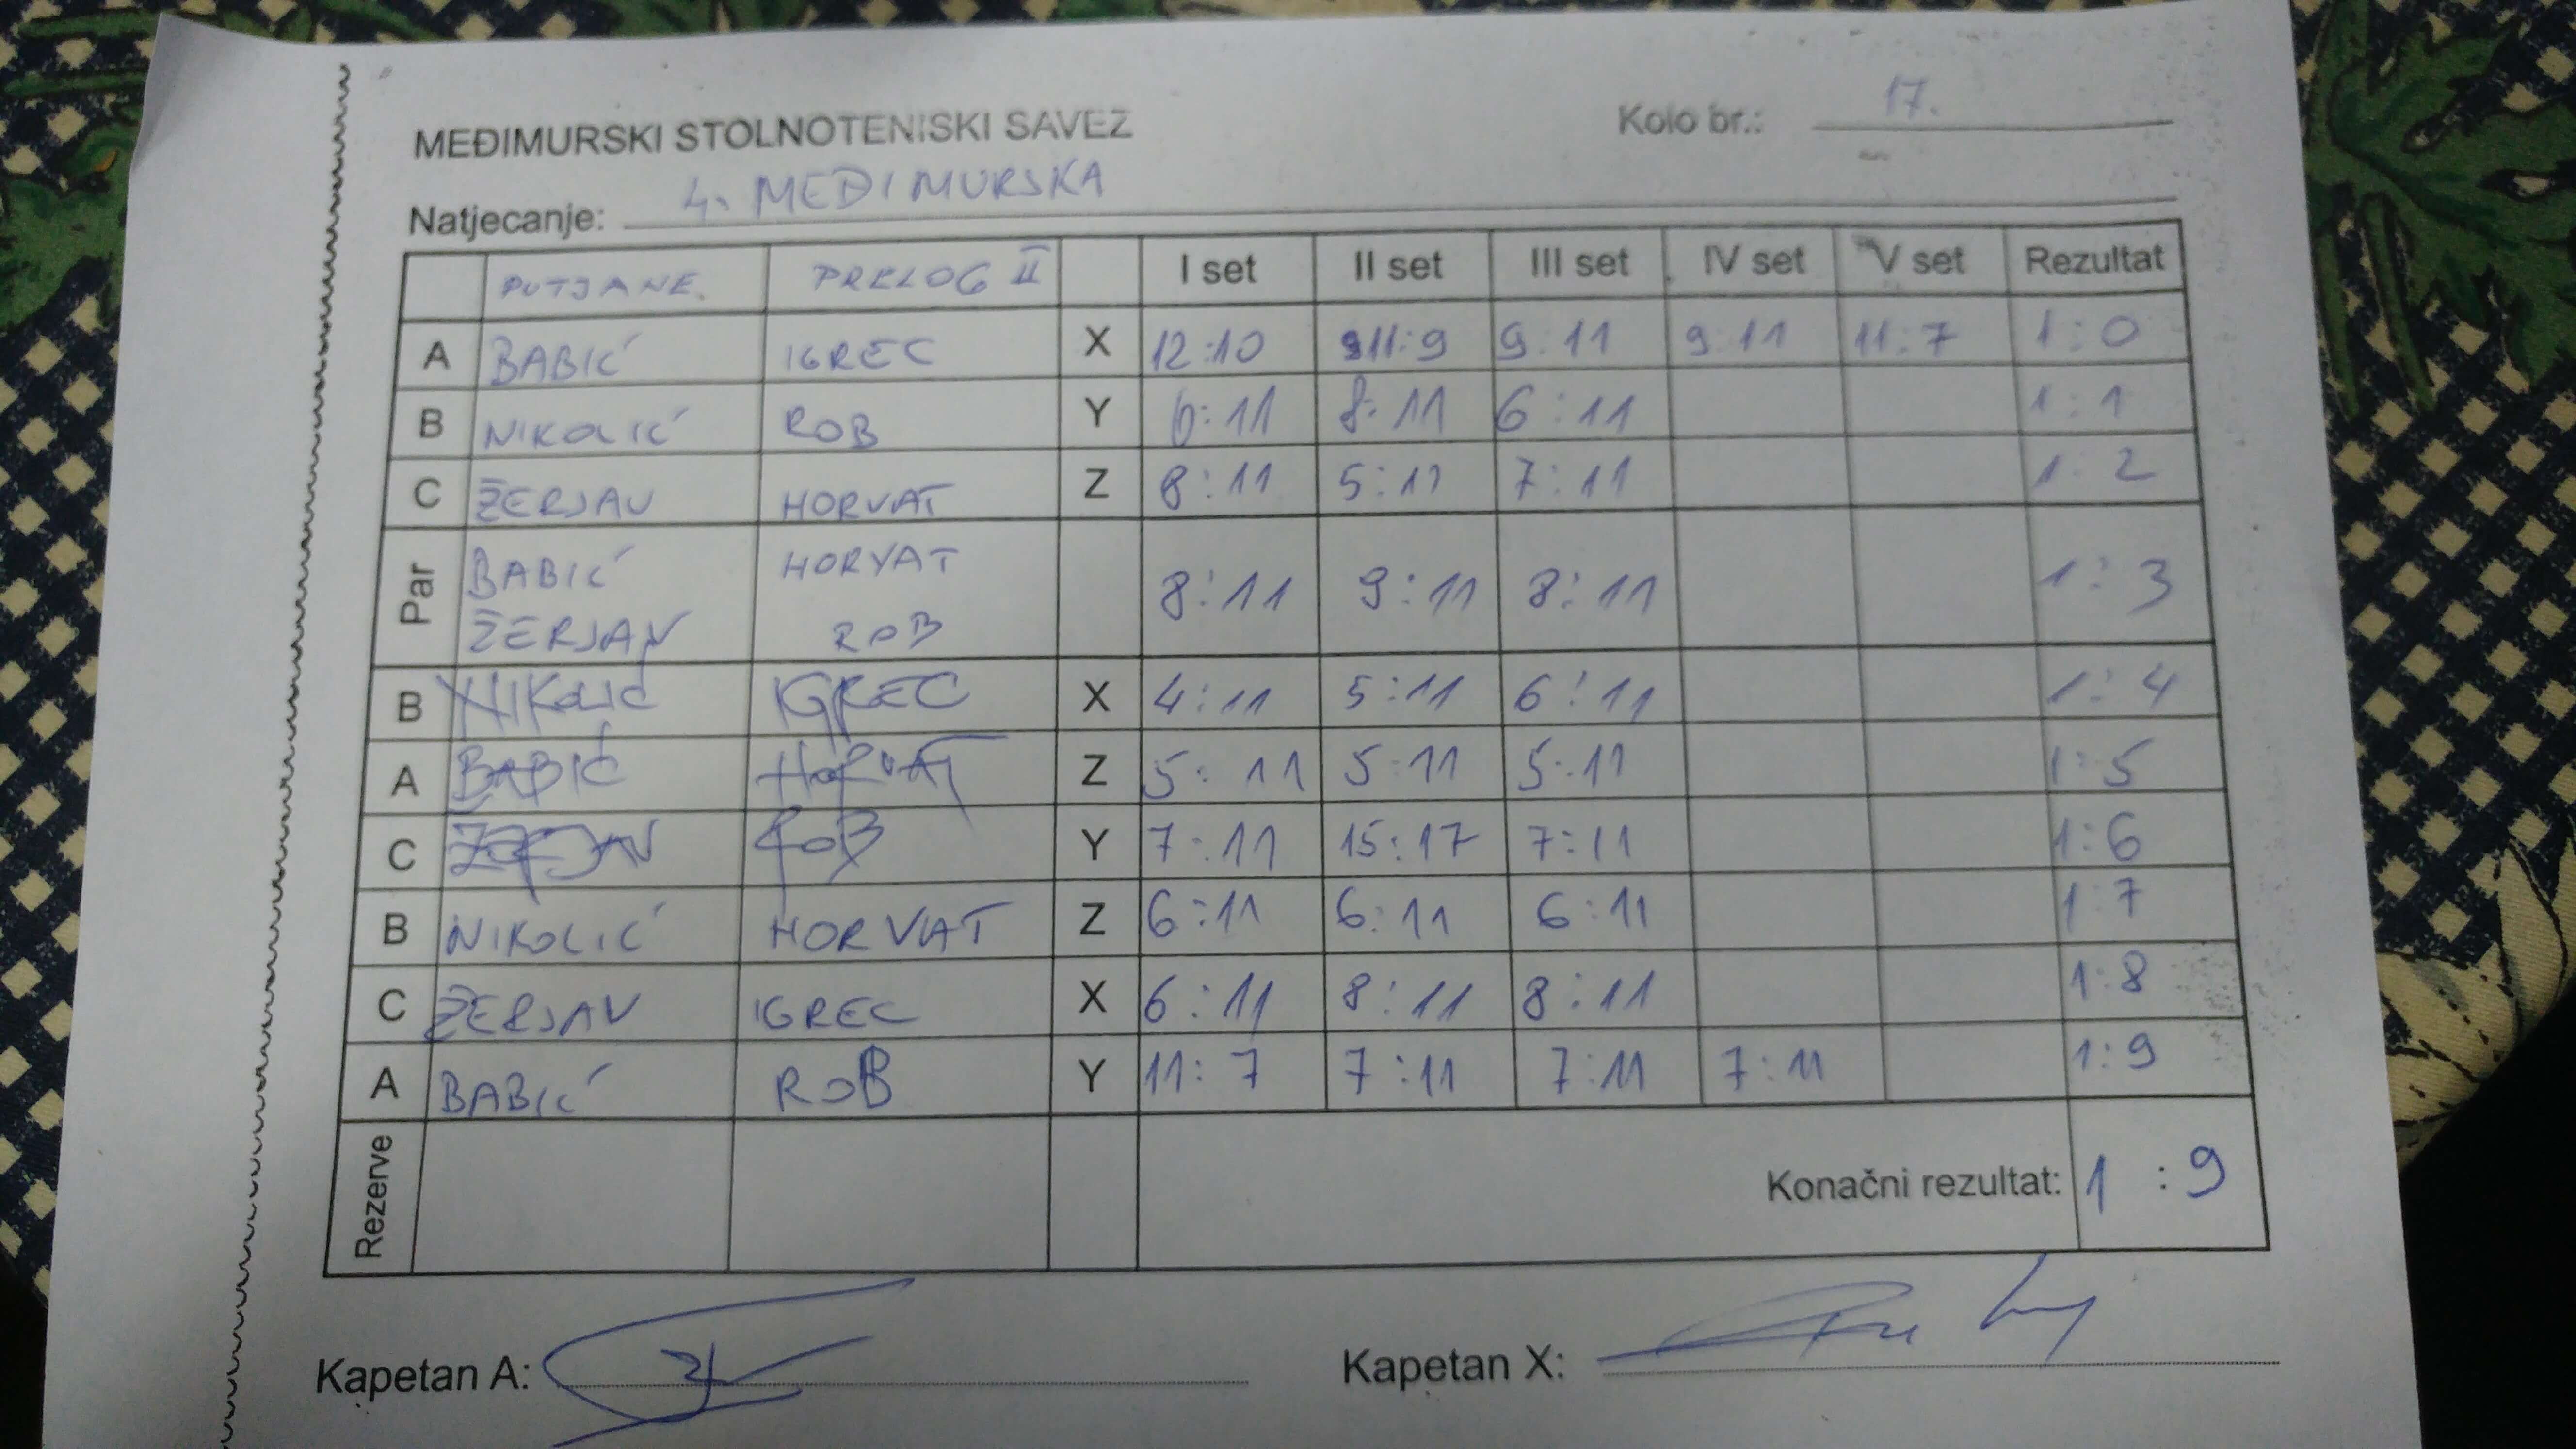 MEĐIMURSKI STOLNOTENISKI SAVEZ Kolo br.: 17.
Natjecanje: 4. MEĐIMURSKA
PUTJANE. PRELOG II I set II set III set IV set V set Rezultat
A BABIĆ IGREC X 12:10 11:9 9:11 9:11 11:7 1:0
B NIKOLIĆ ROB Y 6:11 8:11 6:11 1:1
C ŽERJAV HORVAT Z 8:11 5:11 7:11 1:2
Par BABIĆ HORVAT 8:11 9:11 8:11 1:3
ŽERJAV ROB
B NIKOLIĆ IGREC X 4:11 5:11 6:11 1:4
A BABIĆ HORVAT Z 5:11 5:11 5:11 1:5
C ŽERJAV ROB Y 7:11 15:17 7:11 1:6
B NIKOLIĆ HORVAT Z 6:11 6:11 6:11 1:7
C ŽERJAV IGREC X 6:11 8:11 8:11 1:8
A BABIĆ ROB Y 11:7 7:11 7:11 7:11 1:9
Rezerve Konačni rezultat: 1:9
Kapetan A: Kapetan X: